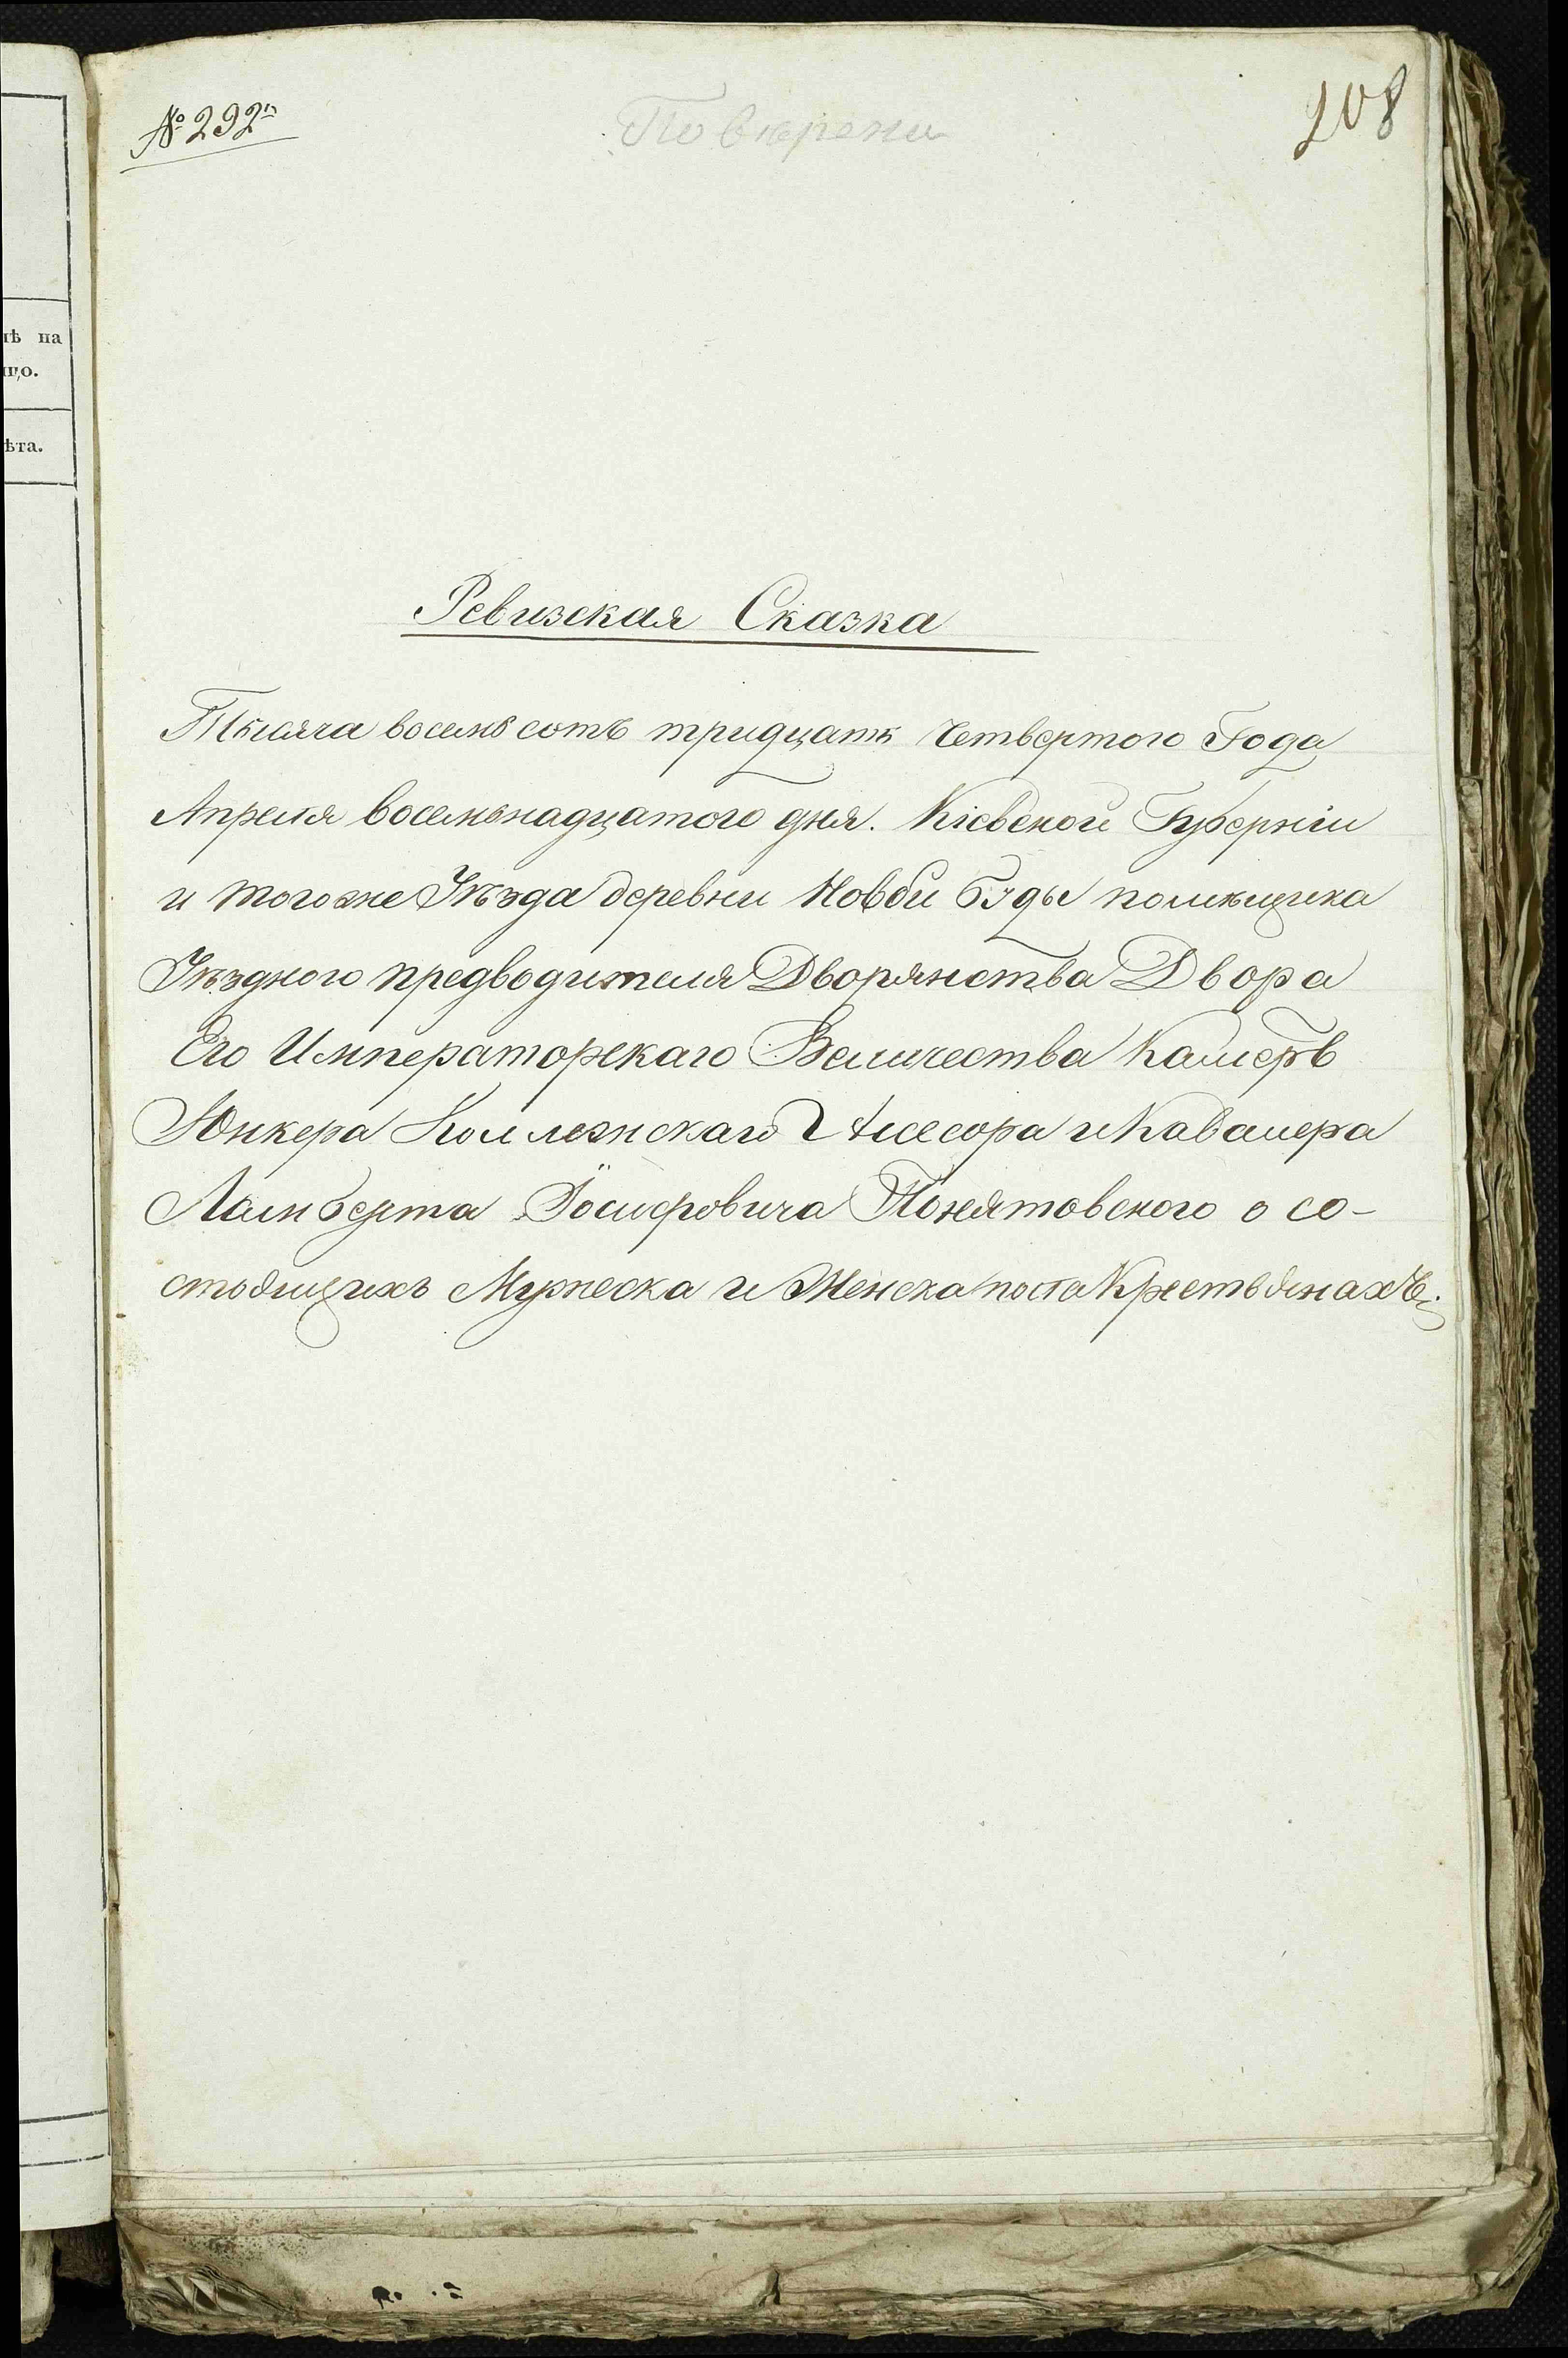 № 292й
Повѣрени
208
лѣ на
що.
ѣта.
Ревизская Сказка
Тысяча восемь сотъ тридцать Четвертого Года
Апреля восемьнадцатого дня. Кіевской Губерніи
и того же Уѣзда деревни Новой Буды помѣщика
Уѣздного предводителя Дворянства Двора
Его Императорскаго Величества Камеръ
Юнкера Коллежскаго Асесора и Кавалера
Ламберта Іосифовича Понятовского о со-
стоящихъ Мужеска и Женска пола Крестьянахъ.